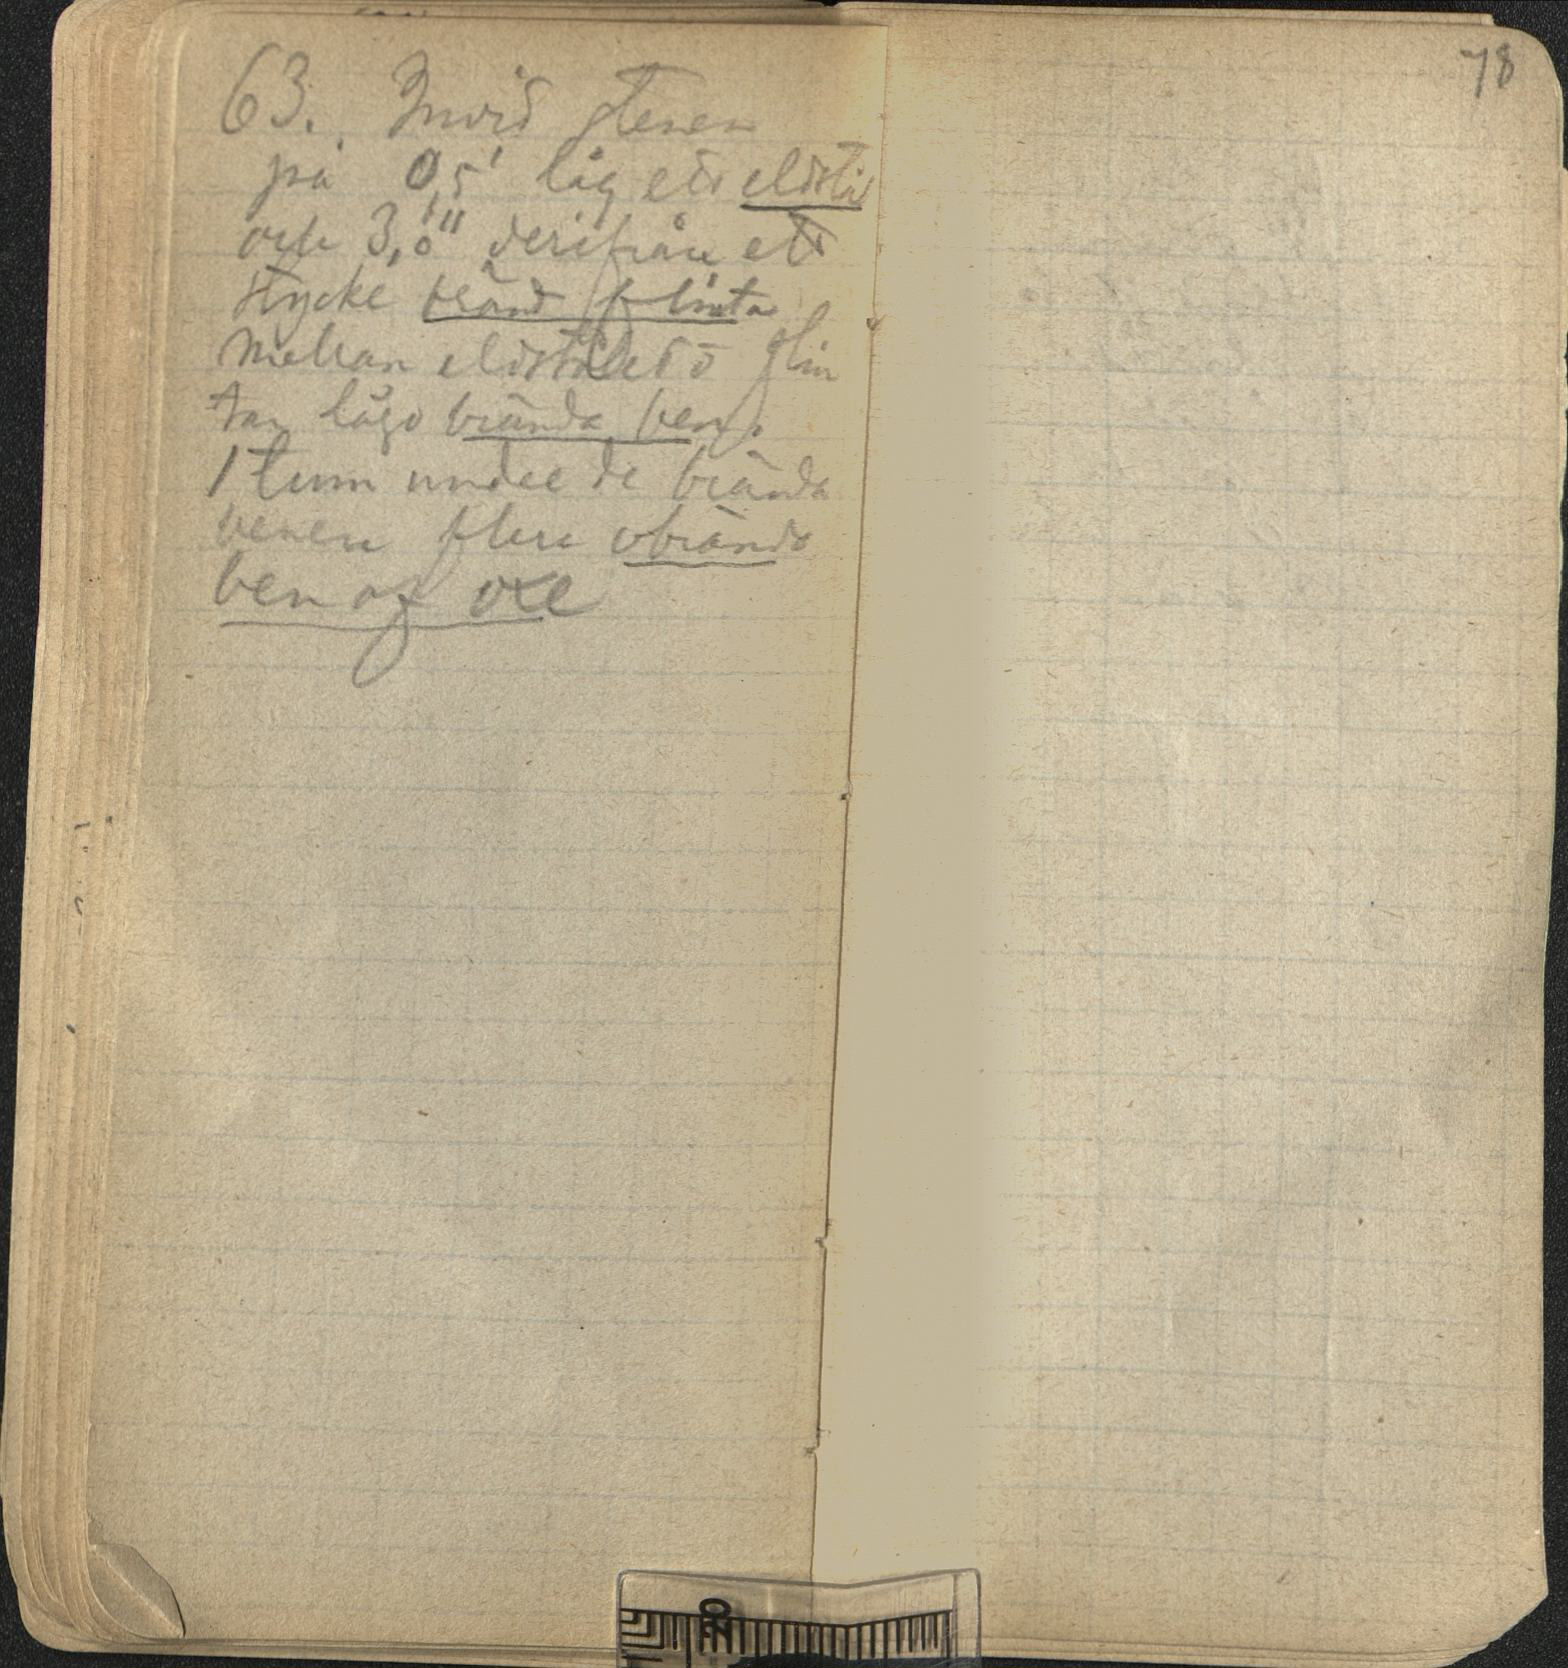 63. Invid stenen
på 0,5' låg ett eldstål
och 3,8" derifrån ett
stycke bränd flinta
mellan eldstålet o flin
tan lågo brända ben.
1 tum under de brända
benen flera obrända
ben af oxe
78